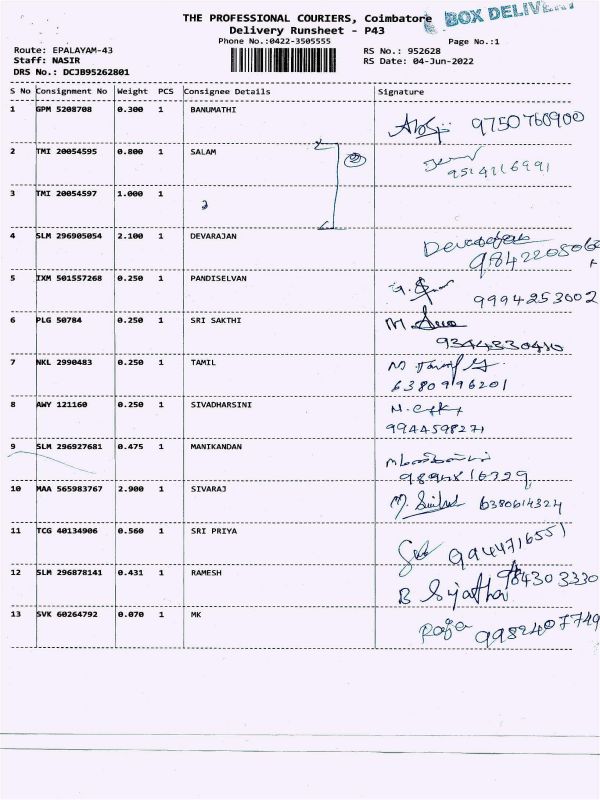 THE PROFESSIONAL COURIERS, Coimbatore
BOX DELIVERY
Delivery Runsheet - P43
Phone No.:0422-3505555 Page No.:1
Route: EPALAYAM-43 RS No.: 952628
Staff: NASIR RS Date: 04-Jun-2022
DRS No.: DCJB95262801
S No Consignment No Weight PCS Consignee Details Signature
1 GPM 5208708 0.300 1 BANUMATHI 9750760900
2 TMI 20054595 0.800 1 SALAM 2
3 TMI 20054597 1.000 1 2
4 SLM 296905054 2.100 1 DEVARAJAN
5 IXM 501557268 0.250 1 PANDISELVAN 9994253002
6 PLG 50784 0.250 1 SRI SAKTHI
9344330410
7 NKL 2990483 0.250 1 TAMIL
6380996201
8 AWY 121160 0.250 1 SIVADHARSINI
9944598271
9 SLM 296927681 0.475 1 MANIKANDAN
10 MAA 565983767 2.900 1 SIVARAJ 6380614324
11 TCG 40134906 0.560 1 SRI PRIYA 9944716551
12 SLM 296878141 0.431 1 RAMESH
13 SVK 60264792 0.070 1 MK Raja 9982407749